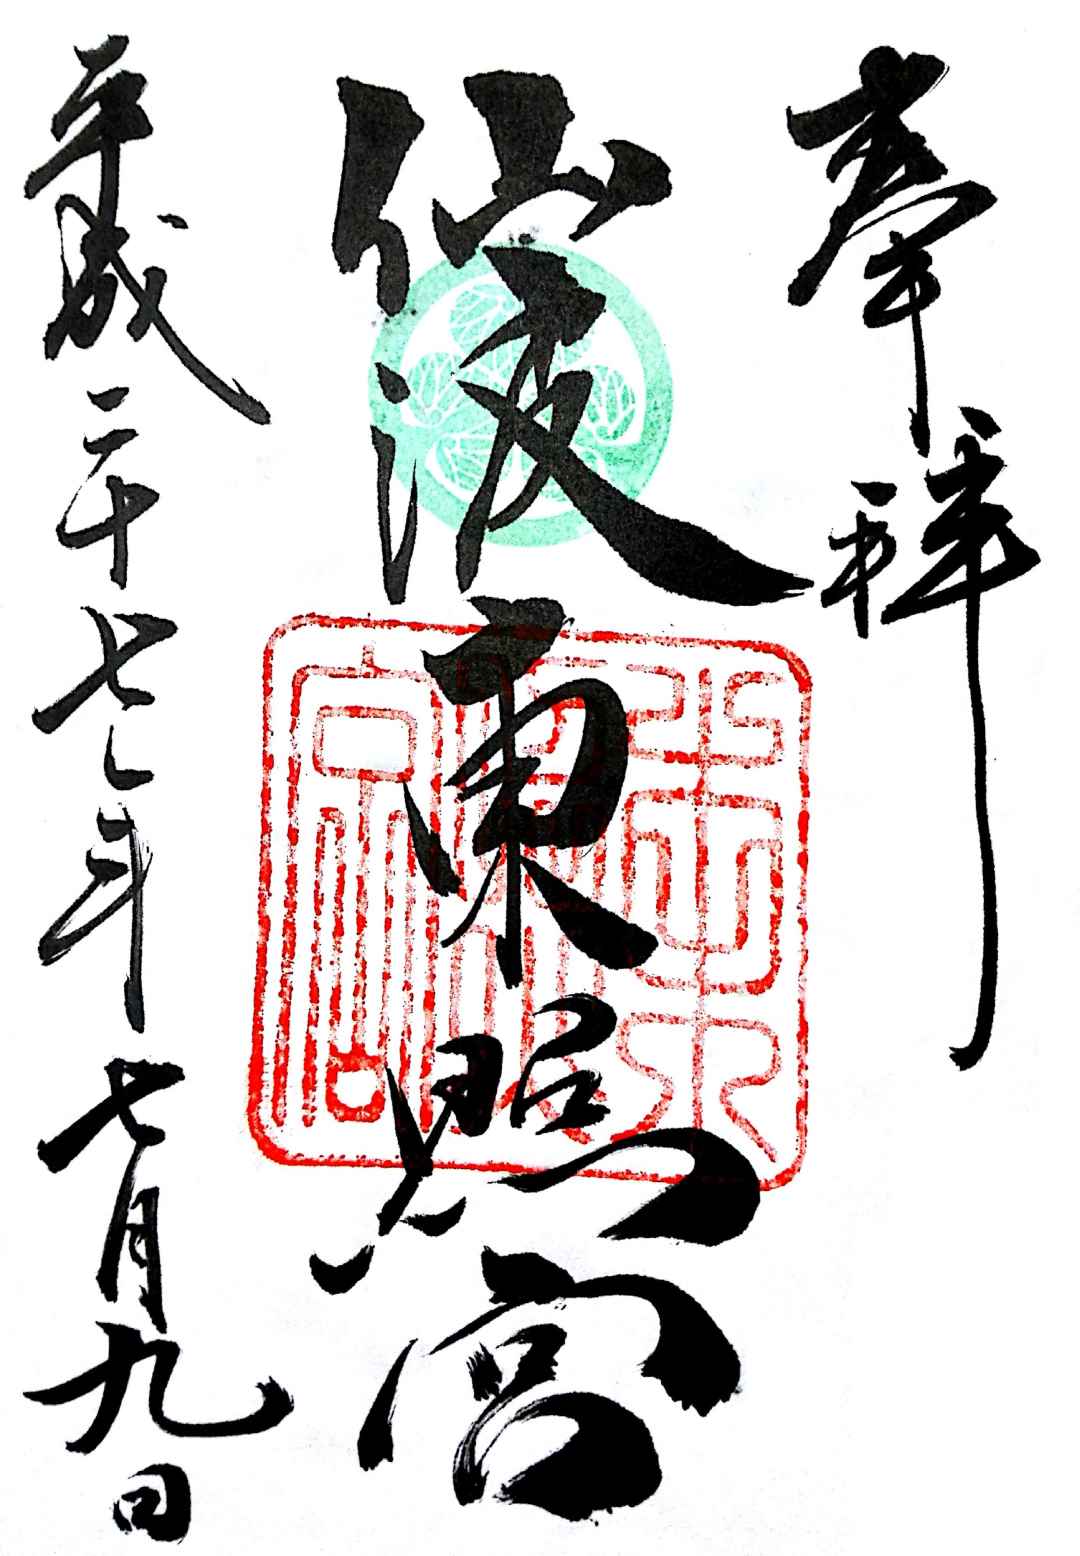 奉拝
仙波東照宮
平成二十七年七月九日